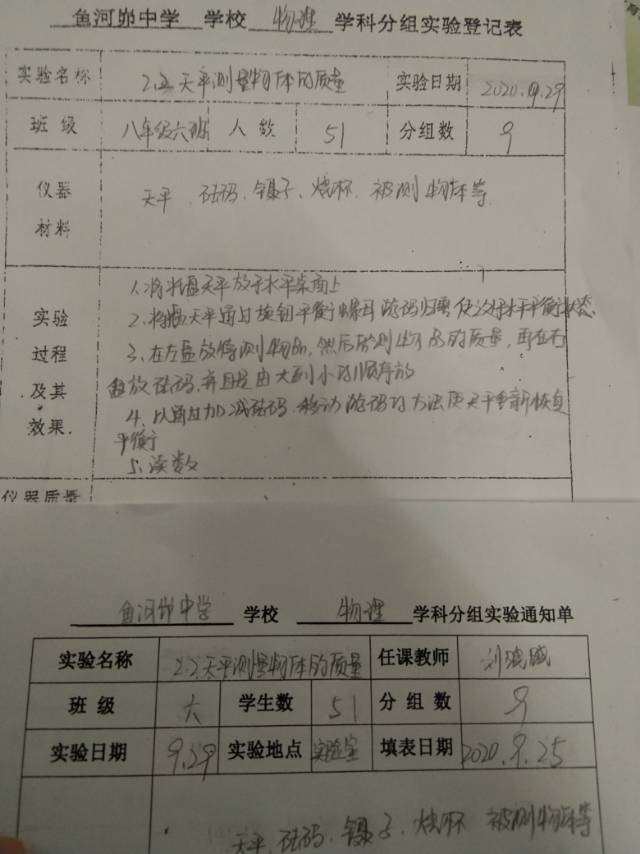 鱼河峁中学 学校 物理 学科分组实验登记表
实验名称 2.2天平测量物体的质量 实验日期 2020.9.29
班级 八年级六班 人数 51 分组数 9
仪器材料 天平、砝码、镊子、烧杯、被测物体等
实验过程及其效果.
1.将托盘天平放于水平桌面上
2.将托盘天平通过旋钮平衡螺母 游码归零 使 水平平衡状态
3.在左盘放待测物品,然后 测物品的质量,再在右
盘放砝码,并且是由大到小的顺序放
4.以通过加减砝码、移动游码的方法使天平重新恢复
平衡
5.读数
仪器质量
鱼河峁中学 学校 物理 学科分组实验通知单
实验名称 2.2天平测量物体的质量 任课教师 刘
班级 六 学生数 51 分组数 9
实验日期 9.29 实验地点 实验室 填表日期 2020.9.25
天平、砝码、镊子、烧杯 被测物体等